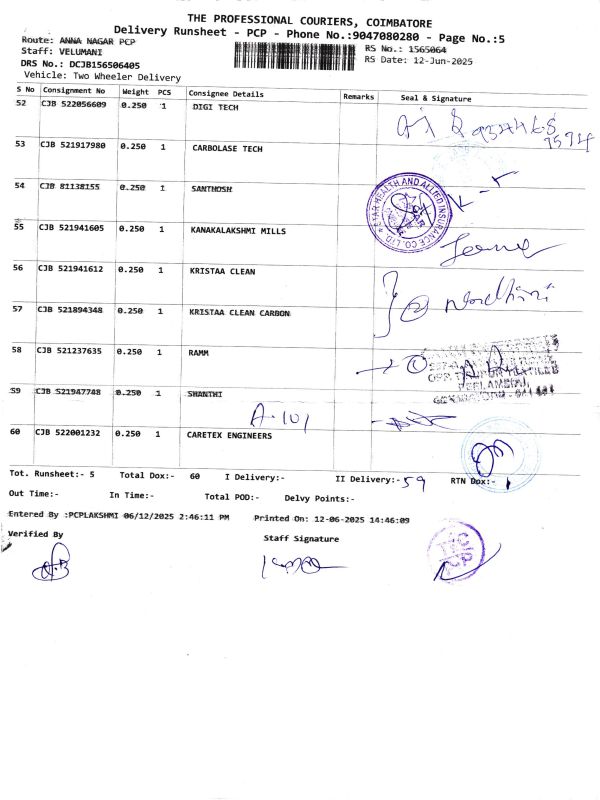 THE PROFESSIONAL COURIERS, COIMBATORE
Delivery Runsheet - PCP - Phone No.:9047080280 - Page No.:5
Route: ANNA NAGAR PCP
RS No.: 1565064
Staff: VELUMANI
RS Date: 12-Jun-2025
DRS No.: DCJB156506405
Vehicle: Two Wheeler Delivery
S No Consignment No Weight PCS Consignee Details Remarks Seal & Signature
52 CJB 522056609 0.250 1 DIGI TECH
53 CJB 521917980 0.250 1 CARBOLASE TECH
54 CJB 81138155 0.250 1 SANTHOSH
STAR HEALTH AND ALLIED INSURANCE CO. LTD.
55 CJB 521941605 0.250 1 KANAKALAKSHMI MILLS
56 CJB 521941612 0.250 1 KRISTAA CLEAN
57 CJB 521894348 0.250 1 KRISTAA CLEAN CARBON
58 CJB 521237635 0.250 1 RAMM
59 CJB 521947748 0.250 1 SHANTHI
A-101
60 CJB 522001232 0.250 1 CARETEX ENGINEERS
Tot. Runsheet:- 5 Total Dox:- 60 I Delivery:- II Delivery:- 59 RTN Dox:- 1
Out Time:- In Time:- Total POD:- Delvy Points:-
Entered By :PCPLAKSHMI 06/12/2025 2:46:11 PM Printed On: 12-06-2025 14:46:09
Verified By Staff Signature